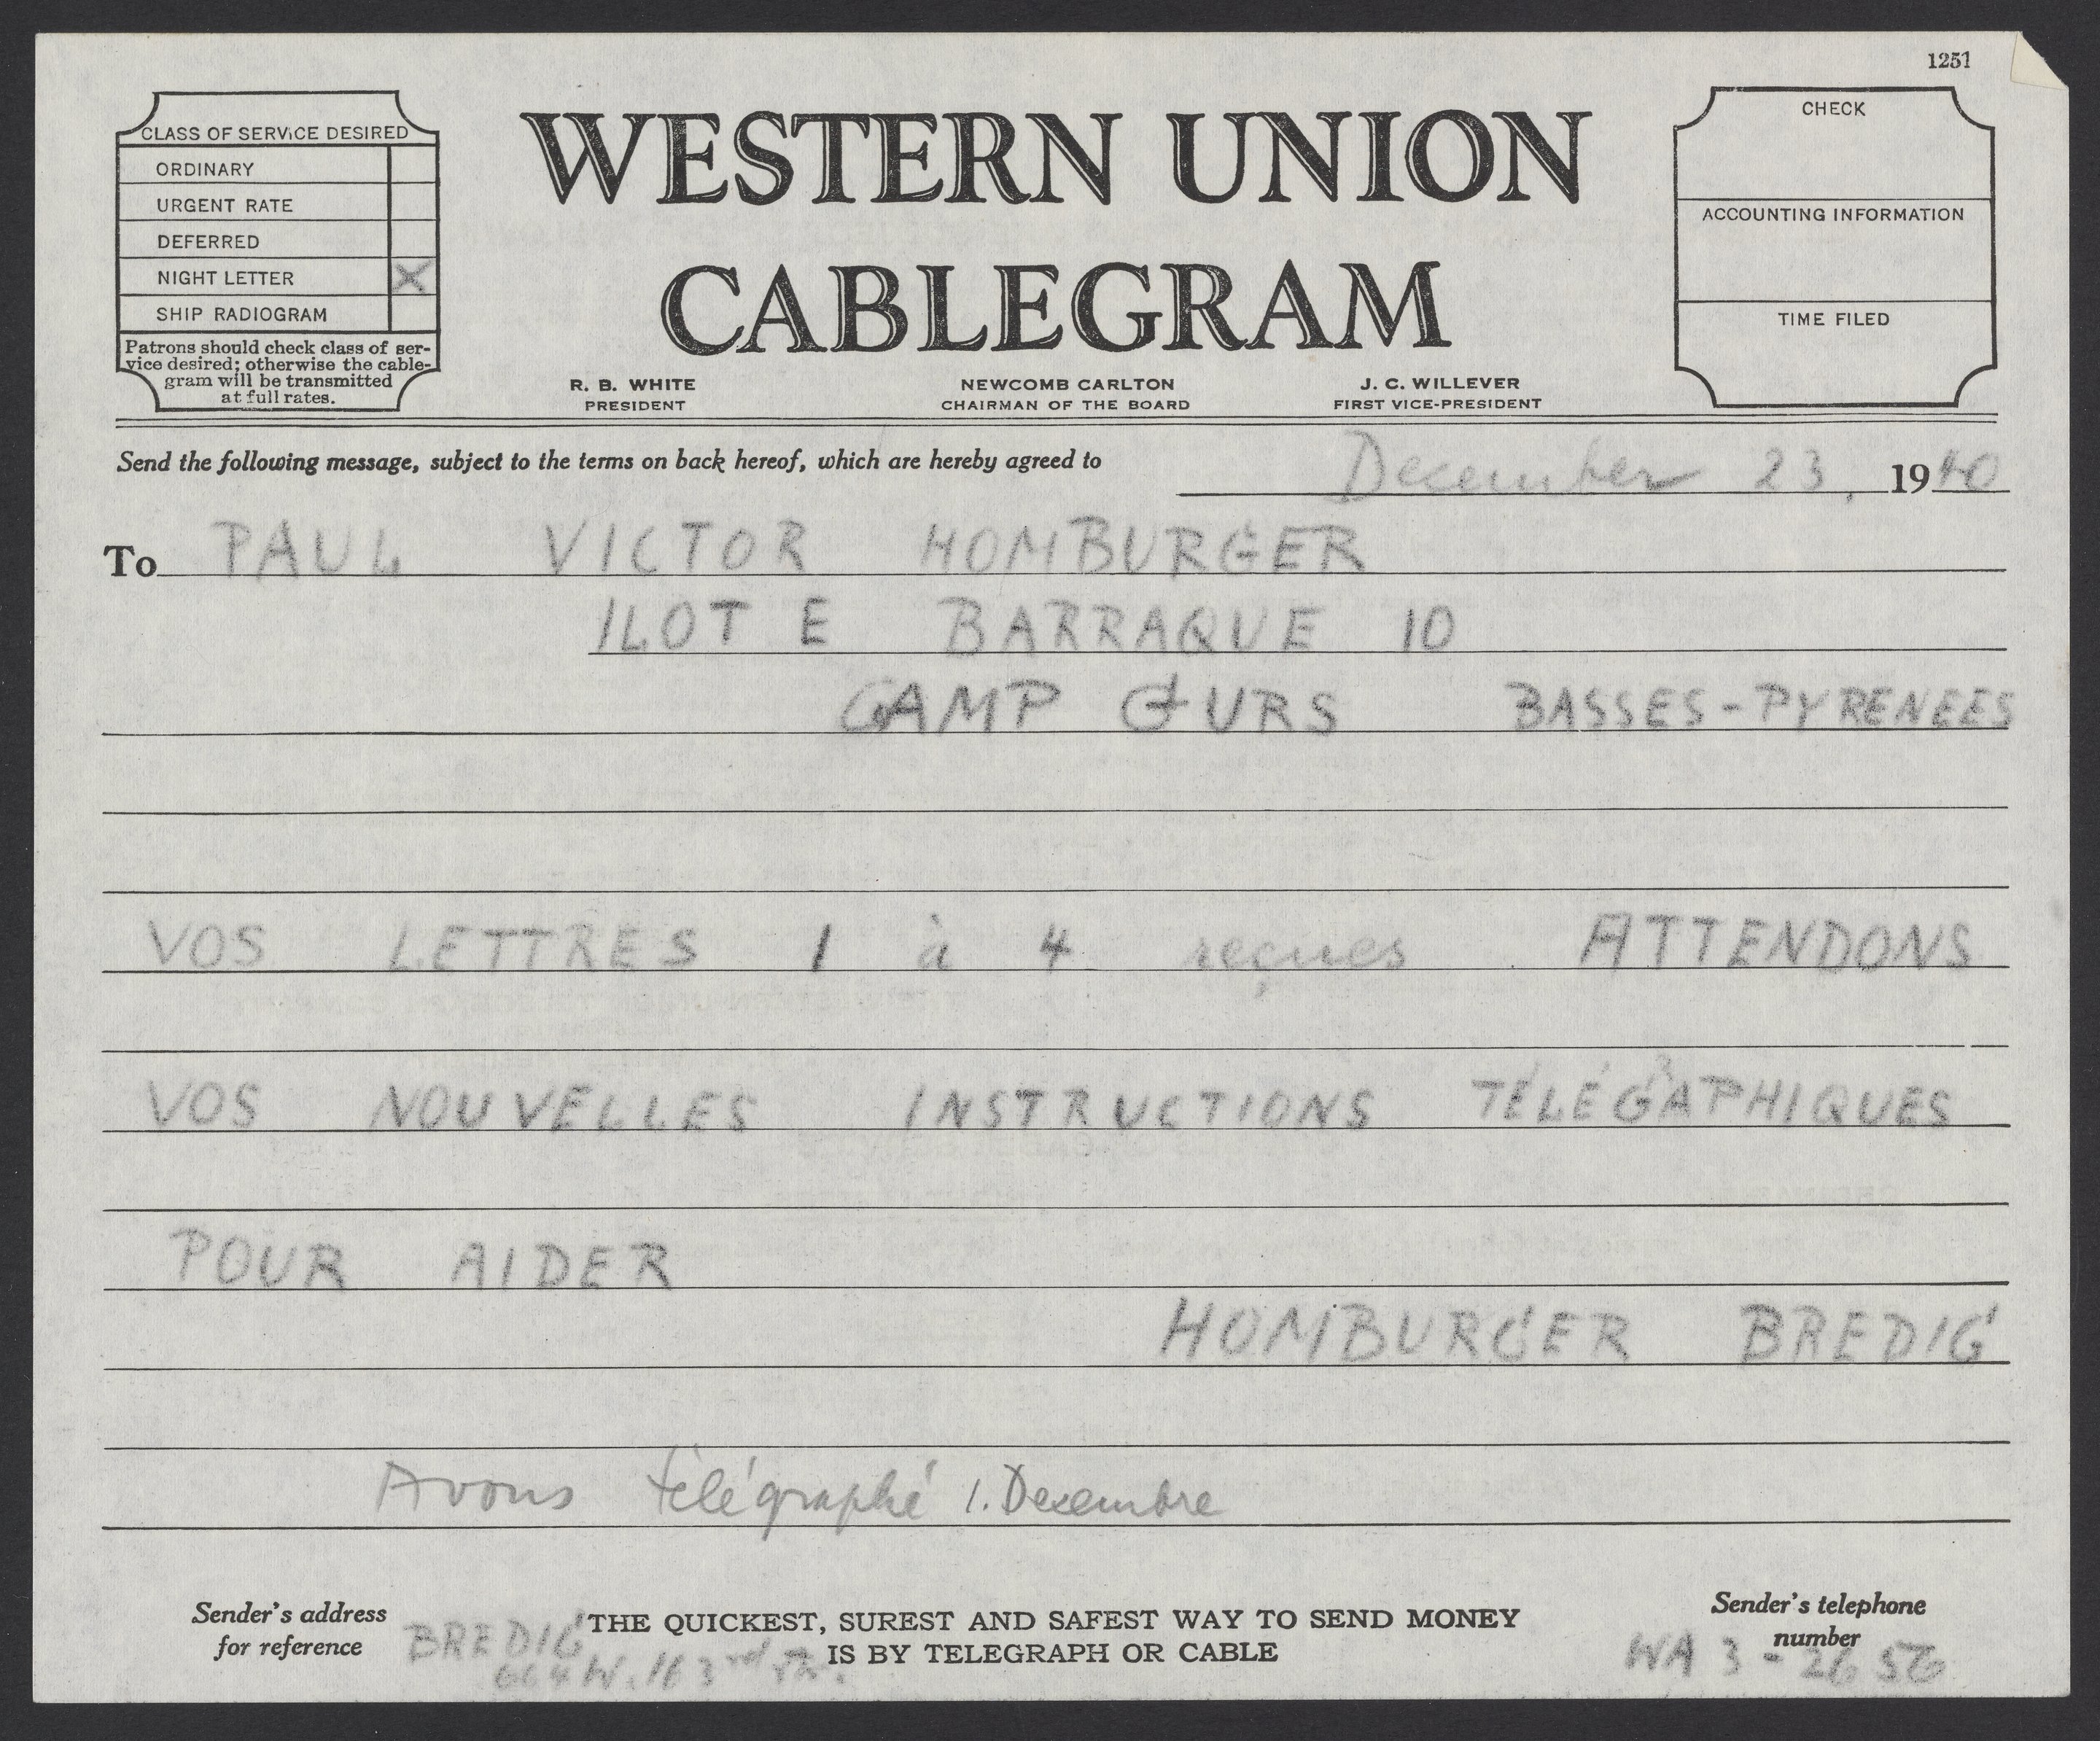 1251
CLASS OF SERVICE DESIRED
ORDINARY
URGENT RATE
DEFERRED
NIGHT LETTER X
SHIP RADIOGRAM
Patrons should check class of ser-
vice desired; otherwise the cable-
gram will be transmitted
at full rates.
WESTERN UNION
CABLEGRAM
R. B. WHITE
PRESIDENT
NEWCOMB CARLTON
CHAIRMAN OF THE BOARD
J. C. WILLEVER
FIRST VICE-PRESIDENT
CHECK
ACCOUNTING INFORMATION
TIME FILED
Send the following message, subject to the terms on back hereof, which are hereby agreed to
December 23, 1940
To PAUL VICTOR HOMBURGER
ILOT E BARRAQUE 10
CAMP GURS BASSES-PYRENEES
VOS LETTRES 1 à 4 reçues ATTENDONS
VOS NOUVELLES INSTRUCTIONS TÉLÉGRAPHIQUES
POUR AIDER
HOMBURGER BREDIG
Avons télégraphé 1. Decembre
Sender's address
for reference
BREDIG
664 W. 163rd Str.
THE QUICKEST, SUREST AND SAFEST WAY TO SEND MONEY
IS BY TELEGRAPH OR CABLE
Sender's telephone
number
WA 3-2656